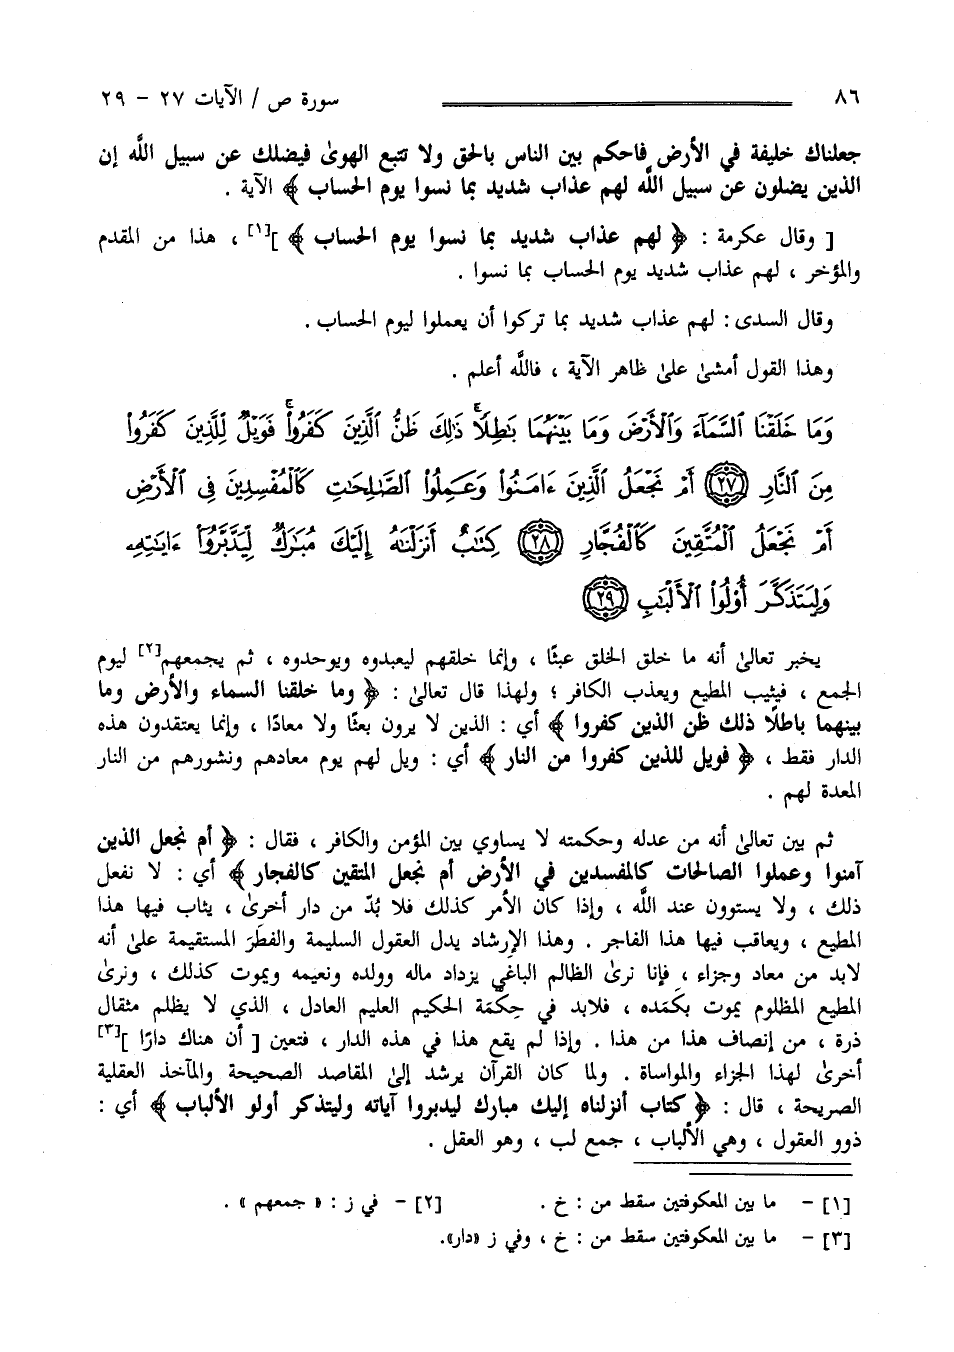 ٨٦ سورة ص / الآيات ٢٧ - ٢٩
جعلناك خليفة في الأرض فاحكم بين الناس بالحق ولا تتبع الهوىٰ فيضلك عن سبيل اللَّه إن
الذين يضلون عن سبيل اللَّه لهم عذاب شديد بما نسوا يوم الحساب ﴾ الآية .
[ وقال عكرمة : ﴿ لهم عذاب شديد بما نسوا يوم الحساب ﴾ ][١] ، هذا من المقدم
والمؤخر ، لهم عذاب شديد يوم الحساب بما نسوا .
وقال السدى : لهم عذاب شديد بما تركوا أن يعملوا ليوم الحساب .
وهذا القول أمشىٰ علىٰ ظاهر الآية ، فاللَّه أعلم .
وَمَا خَلَقْنَا ٱلسَّمَآءَ وَٱلْأَرْضَ وَمَا بَيْنَهُمَا بَٰطِلًا ۚ ذَٰلِكَ ظَنُّ ٱلَّذِينَ كَفَرُوا۟ ۚ فَوَيْلٌ لِّلَّذِينَ كَفَرُوا۟
مِنَ ٱلنَّارِ ﴿٢٧﴾ أَمْ نَجْعَلُ ٱلَّذِينَ ءَامَنُوا۟ وَعَمِلُوا۟ ٱلصَّٰلِحَٰتِ كَٱلْمُفْسِدِينَ فِى ٱلْأَرْضِ
أَمْ نَجْعَلُ ٱلْمُتَّقِينَ كَٱلْفُجَّارِ ﴿٢٨﴾ كِتَٰبٌ أَنزَلْنَٰهُ إِلَيْكَ مُبَٰرَكٌ لِّيَدَّبَّرُوٓا۟ ءَايَٰتِهِۦ
وَلِيَتَذَكَّرَ أُو۟لُوا۟ ٱلْأَلْبَٰبِ ﴿٢٩﴾
يخبر تعالىٰ أنه ما خلق الخلق عبثًا ، وإنما خلقهم ليعبدوه ويوحدوه ، ثم يجمعهم[٢] ليوم
الجمع ، فيثيب المطيع ويعذب الكافر ؛ ولهذا قال تعالىٰ : ﴿ وما خلقنا السماء والأرض وما
بينهما باطلًا ذلك ظن الذين كفروا ﴾ أي : الذين لا يرون بعثًا ولا معادًا ، وإنما يعتقدون هذه
الدار فقط ، ﴿ فويل للذين كفروا من النار ﴾ أي : ويل لهم يوم معادهم ونشورهم من النار
المعدة لهم .
ثم بين تعالىٰ أنه من عدله وحكمته لا يساوي بين المؤمن والكافر ، فقال : ﴿ أم نجعل الذين
آمنوا وعملوا الصالحات كالمفسدين في الأرض أم نجعل المتقين كالفجار ﴾ أي : لا نفعل
ذلك ، ولا يستوون عند اللَّه ، وإذا كان الأمر كذلك فلا بُدّ من دار أخرىٰ ، يثاب فيها هذا
المطيع ، ويعاقب فيها هذا الفاجر . وهذا الإرشاد يدل العقول السليمة والفطَر المستقيمة علىٰ أنه
لابد من معاد وجزاء ، فإنا نرىٰ الظالم الباغي يزداد ماله وولده ونعيمه ويموت كذلك ، ونرىٰ
المطيع المظلوم يموت بكَمَده ، فلابد في حِكمَة الحكيم العليم العادل ، الذي لا يظلم مثقال
ذرة ، من إنصاف هذا من هذا . وإذا لم يقع هذا في هذه الدار ، فتعين [ أن هناك دارًا ][٣]
أخرىٰ لهذا الجزاء والمواساة . ولما كان القرآن يرشد إلىٰ المقاصد الصحيحة والمآخذ العقلية
الصريحة ، قال : ﴿ كتاب أنزلناه إليك مبارك ليدبروا آياته وليتذكر أولو الألباب ﴾ أي :
ذوو العقول ، وهي الألباب ، جمع لب ، وهو العقل .
[١] - ما بين المعكوفتين سقط من : خ . [٢] - في ز : « جمعهم » .
[٣] - ما بين المعكوفتين سقط من : خ ، وفي ز «دار».